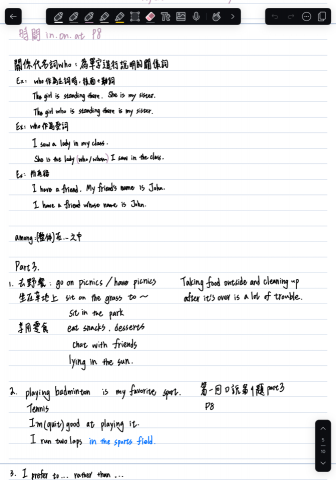 時間 in.on.at P8
關係代名詞who：為單字進行說明的關係詞
Ex: who作為主詞時，後面+動詞
The girl is standing there. She is my sister.
The girl who is standing there is my sister.
Ex: who作為受詞
I saw a lady in my class.
She is the lady (who/whom) I saw in the class.
Ex: 所有格
I have a friend. My friend's name is John.
I have a friend whose name is John.
among:(整個)在...之中
Part 3.
1. 去野餐: go on picnics / have picnics Taking food outside and cleaning up
坐在草地上 sit on the grass to ~ after it's over is a lot of trouble.
sit in the park
享用美食 eat snacks, desserts
chat with friends
lying in the sun.
2. playing badminton is my favorite sport. 第一回口說第1題 part3
Tennis P8
I'm (quite) good at playing it.
I run two laps in the sports field.
3. I prefer to ... rather than ...